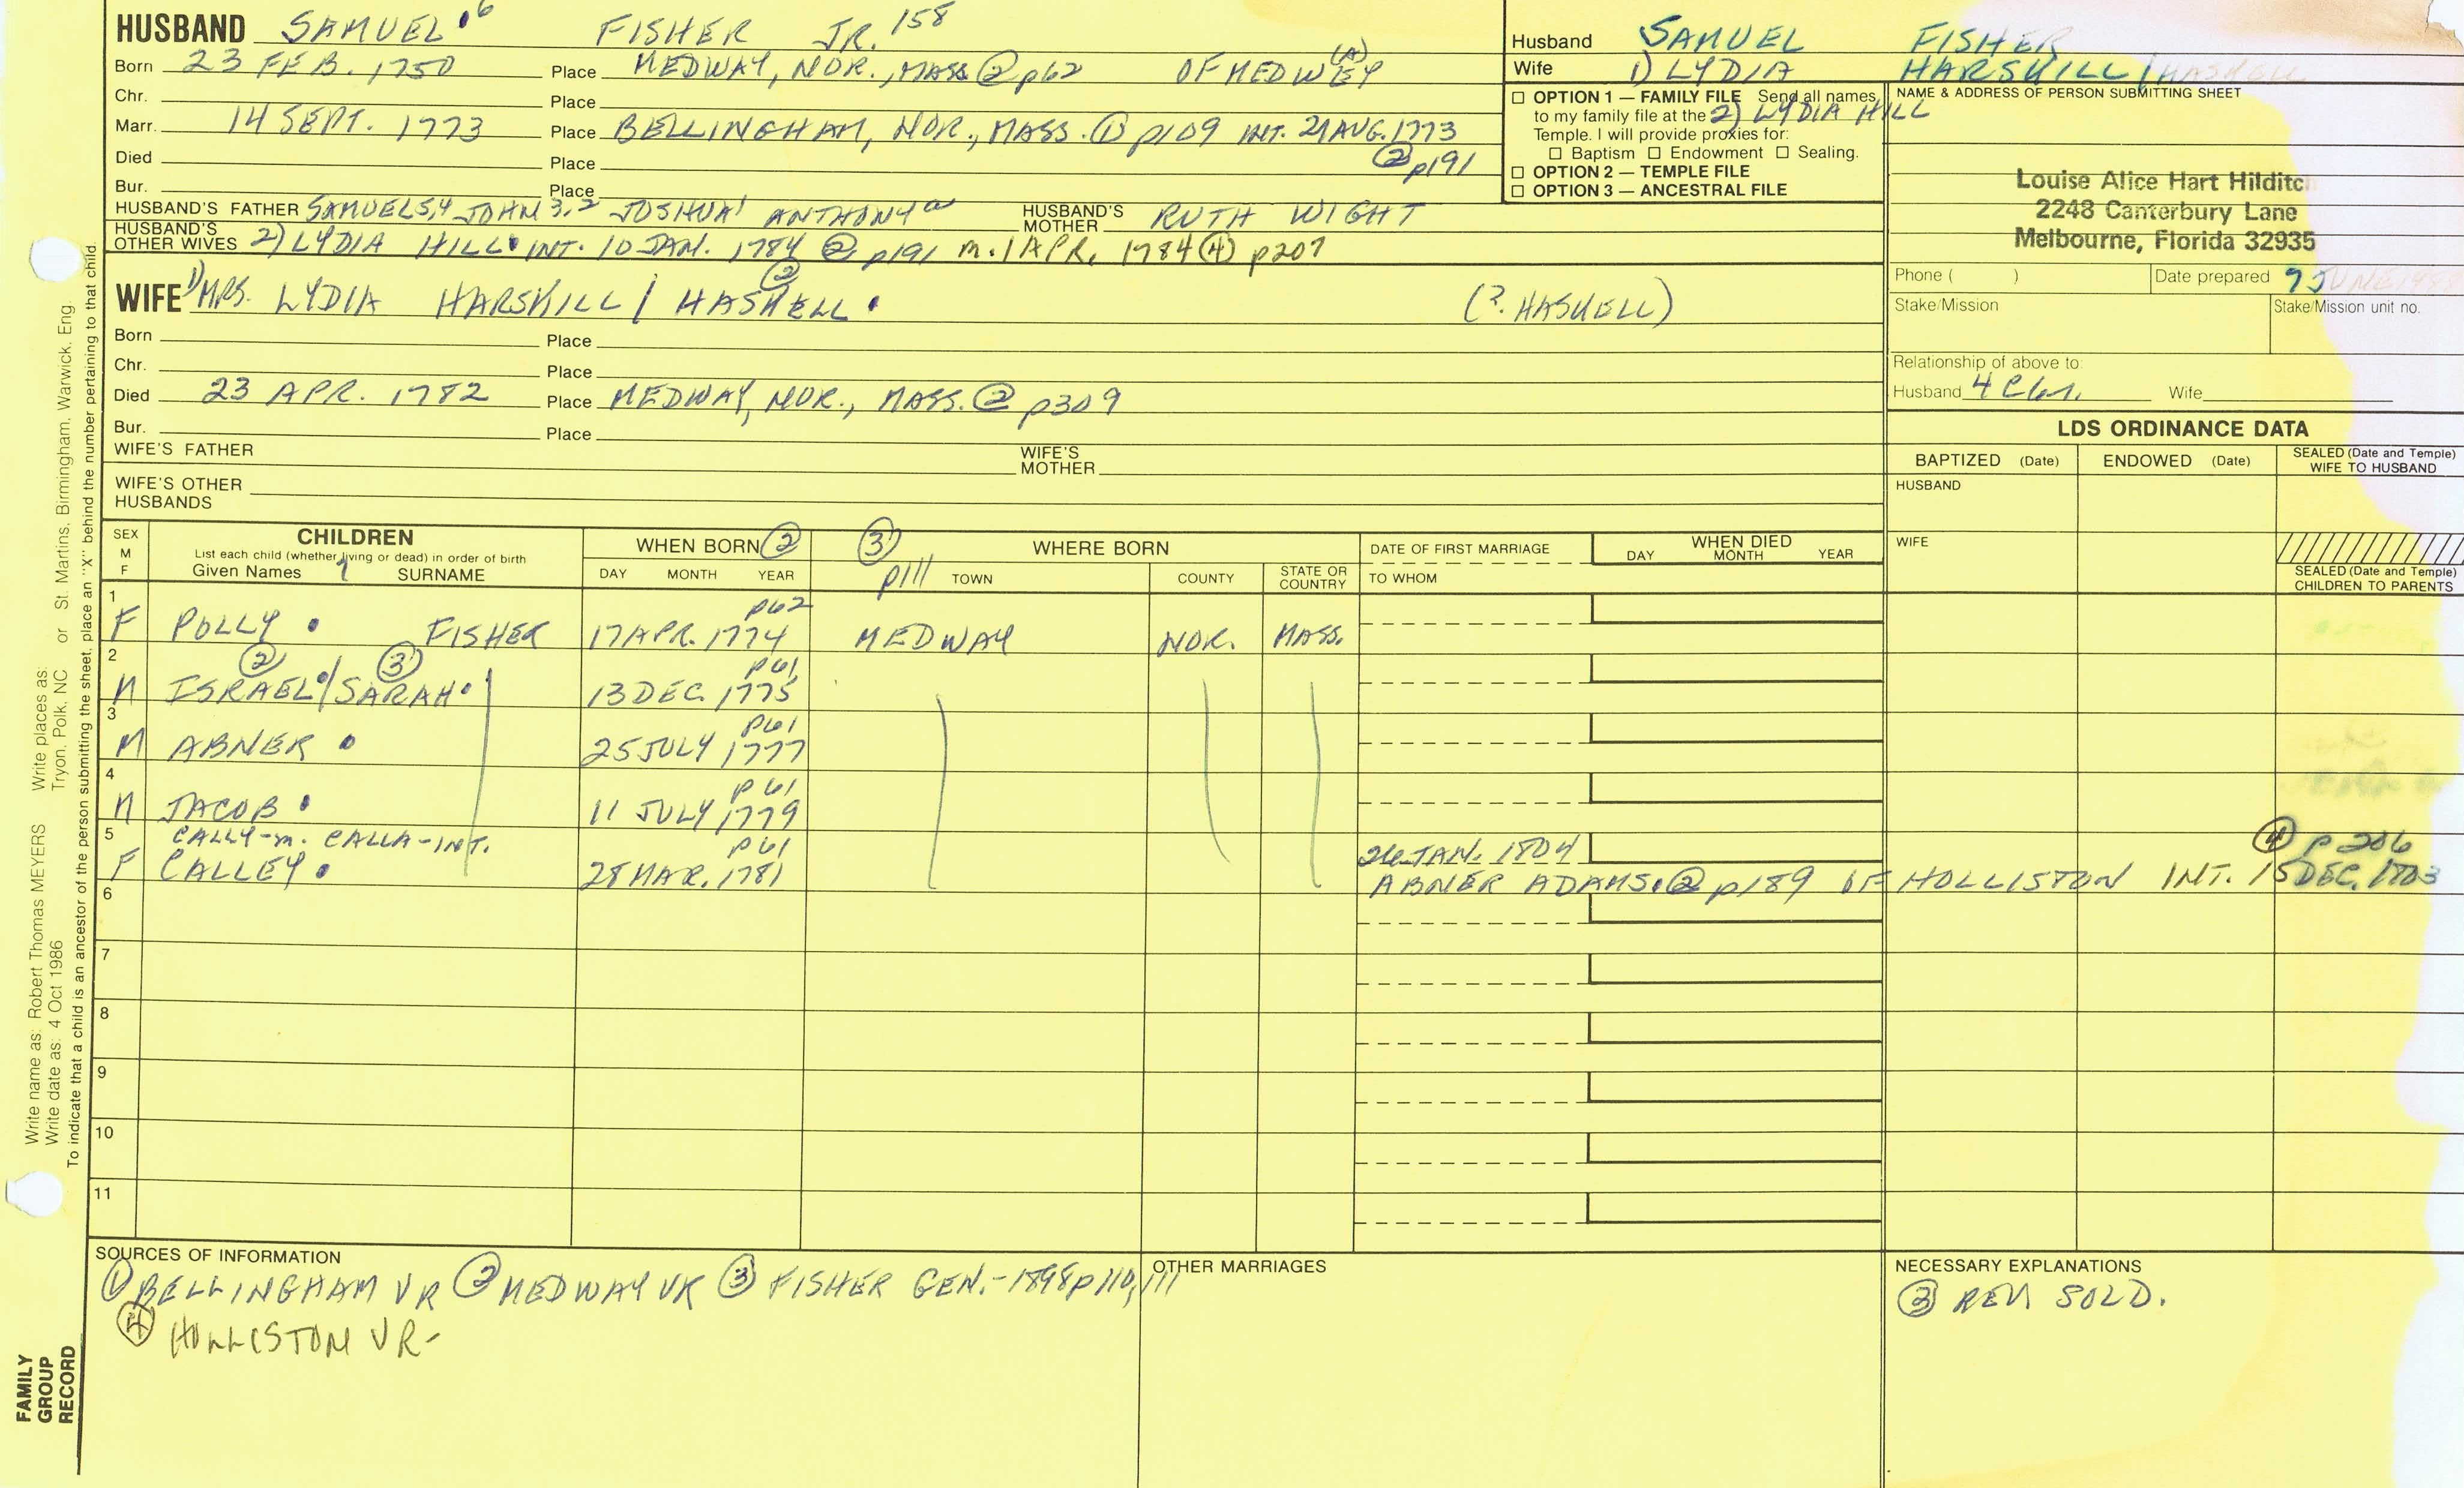 HUSBAND SAMUEL 6 FISHER JR. 158
Born 23 FEB. 1750 Place MEDWAY, NOR., MASS ② p62 OF MEDWEY (A)
Chr. Place
Marr. 14 SEPT. 1773 Place BELLINGHAM, NOR., MASS. ① p109 INT. 21 AUG. 1773
② p191
Died Place
Bur. Place
HUSBAND'S FATHER SAMUEL 5,4 JOHN 3,2 JOSHUA 1 ANTHONY a HUSBAND'S MOTHER RUTH WIGHT
HUSBAND'S OTHER WIVES 2) LYDIA HILL INT. 10 JAN. 1784 ② p191 m. 1 APR. 1784 ④ p207
WIFE 1) MRS. LYDIA HARSKILL / HASKELL ② (?. HASKELL)
Born Place
Chr. Place
Died 23 APR. 1782 Place MEDWAY, NOR., MASS. ② p309
Bur. Place
WIFE'S FATHER WIFE'S MOTHER
WIFE'S OTHER HUSBANDS
Husband SAMUEL FISHER
Wife 1) LYDIA HARSKILL / HASKELL
2) LYDIA HILL
☐ OPTION 1 — FAMILY FILE Send all names
to my family file at the
Temple. I will provide proxies for:
☐ Baptism ☐ Endowment ☐ Sealing.
☐ OPTION 2 — TEMPLE FILE
☐ OPTION 3 — ANCESTRAL FILE
NAME & ADDRESS OF PERSON SUBMITTING SHEET
Louise Alice Hart Hilditc
2248 Canterbury Lane
Melbourne, Florida 32935
Phone ( ) Date prepared JUNE
Stake/Mission Stake/Mission unit no.
Relationship of above to:
Husband 4 Wife
LDS ORDINANCE DATA
BAPTIZED (Date) ENDOWED (Date) SEALED (Date and Temple) WIFE TO HUSBAND
HUSBAND
WIFE
SEALED (Date and Temple) CHILDREN TO PARENTS
SEX M F CHILDREN WHEN BORN ② ③ p111 WHERE BORN DATE OF FIRST MARRIAGE WHEN DIED
List each child (whether living or dead) in order of birth
Given Names 7 SURNAME DAY MONTH YEAR TOWN COUNTY STATE OR COUNTRY TO WHOM DAY MONTH YEAR
1 F POLLY FISHER 17 APR. 1774 p62 MEDWAY NOR. MASS.
2 M ISRAEL ② / SARAH ③ 13 DEC. 1775 p61
3 M ABNER 25 JULY 1777 p61
4 M JACOB 11 JULY 1779 p61
5 CALLY-m. CALLA-INT. p61 26 JAN. 1804 ④ p 206
F CALLEY 28 MAR. 1781 ABNER ADAMS ② p189 OF HOLLISTON INT. 15 DEC. 1803
6
7
8
9
10
11
SOURCES OF INFORMATION
① BELLINGHAM VR ② MEDWAY VR ③ FISHER GEN.-1898 p110,111
④ HOLLISTON VR-
OTHER MARRIAGES
NECESSARY EXPLANATIONS
③ REV SOLD.
Write name as: Robert Thomas MEYERS Write places as: Tryon, Polk, NC or St. Martins, Birmingham, Warwick, Eng.
Write date as: 4 Oct 1986
To indicate that a child is an ancestor of the person submitting the sheet, place an "X" behind the number pertaining to that child.
FAMILY
GROUP
RECORD